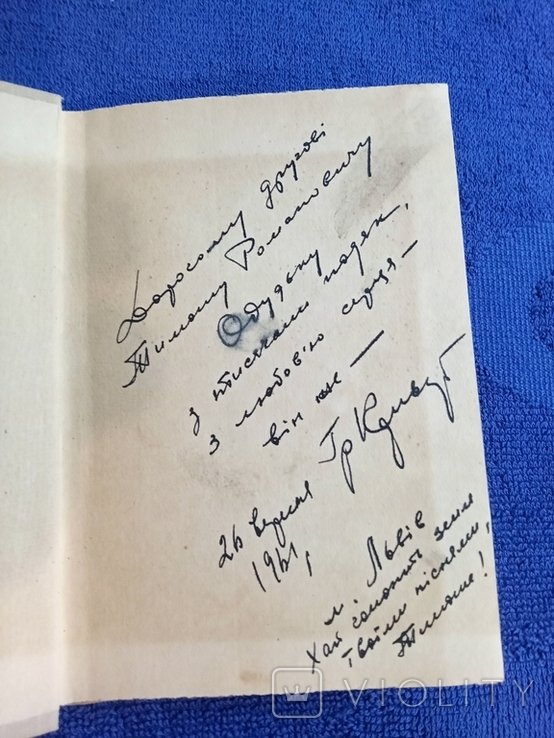 Дорогому другові
Тимошу Романовичу
Одудьку
з тисячами подяк,
з любов'ю серця —
він же —
Гр Кривда
26 вересня
1961,
м. Львів
Хай гомонить земля
твоїми піснями,
Тимоше!
VIOLITY